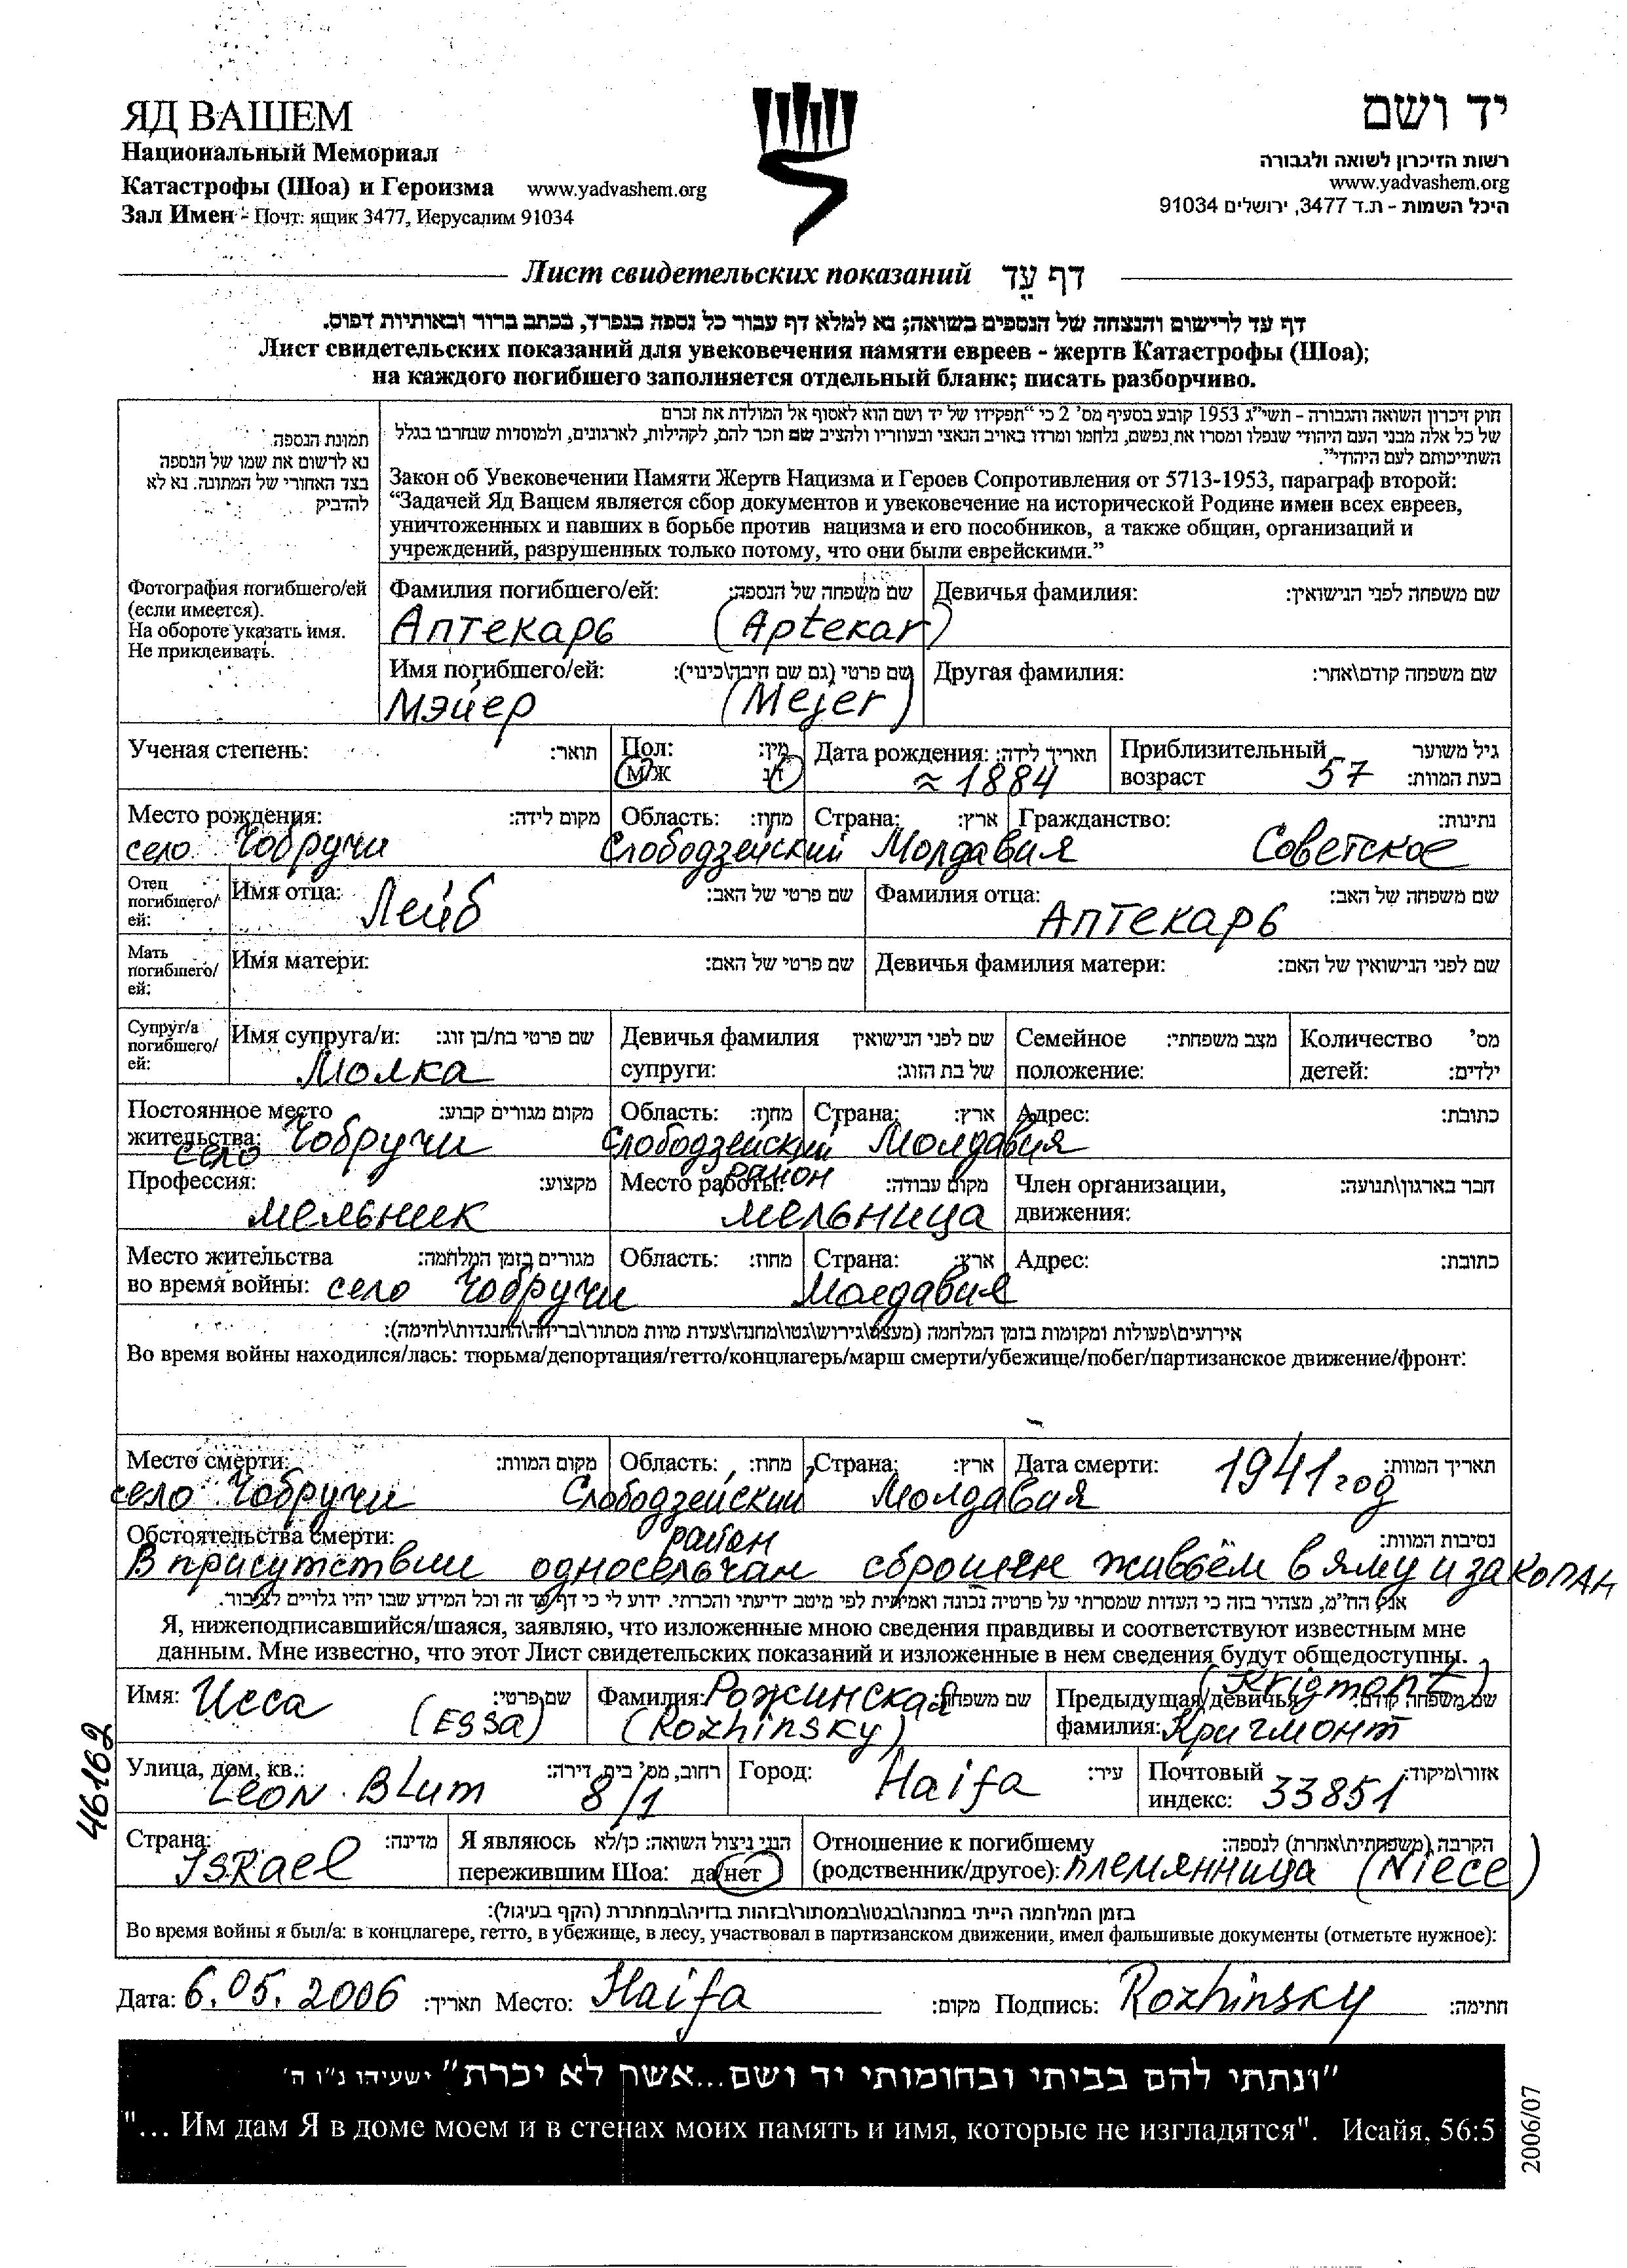 ЯД ВАШЕМ
Национальный Мемориал
Катастрофы (Шоа) и Героизма www.yadvashem.org
Зал Имен - Почт: ящик 3477, Иерусалим 91034
יד ושם
רשות הזיכרון לשואה ולגבורה
www.yadvashem.org
היכל השמות - ת.ד 3477, ירושלים 91034
Лист свидетельских показаний דף עֵד
דף עד לרישום והנצחה של הנספים בשואה; נא למלא דף עבור כל נספה בנפרד, בכתב ברור ובאותיות דפוס.
Лист свидетельских показаний для увековечения памяти евреев - жертв Катастрофы (Шоа);
на каждого погибшего заполняется отдельный бланк; писать разборчиво.
תמונת הנספה.
נא לרשום את שמו של הנספה
בצד האחורי של התמונה. נא לא
להדביק
Фотография погибшего/ей
(если имеется).
На обороте указать имя.
Не приклеивать.
חוק זיכרון השואה והגבורה - תשי"ג 1953 קובע בסעיף מס' 2 כי "תפקידו של יד ושם הוא לאסוף אל המולדת את זכרם
של כל אלה מבני העם היהודי שנפלו ומסרו את נפשם, נלחמו ומרדו באויב הנאצי ובעוזריו ולהציב שם וזכר להם, לקהילות, לארגונים, ולמוסדות שנחרבו בגלל
השתייכותם לעם היהודי".
Закон об Увековечении Памяти Жертв Нацизма и Героев Сопротивления от 5713-1953, параграф второй:
"Задачей Яд Вашем является сбор документов и увековечение на исторической Родине имен всех евреев,
уничтоженных и павших в борьбе против нацизма и его пособников, а также общин, организаций и
учреждений, разрушенных только потому, что они были еврейскими."
Фамилия погибшего/ей: שם משפחה של הנספה: Девичья фамилия: שם משפחה לפני הנישואין:
Аптекарь (Aptekar)
Имя погибшего/ей: שם פרטי (גם שם חיבה\כינוי): Другая фамилия: שם משפחה קודם\אחר:
Мэйер (Mejer)
Ученая степень: תואר: Пол: מין: Дата рождения: תאריך לידה: Приблизительный גיל משוער
м/ж ז\נ ≈ 1884 возраст 57 בעת המוות:
Место рождения: מקום לידה: Область: מחוז: Страна: ארץ: Гражданство: נתינות:
село Чобручи Слободзейский Молдавия Советское
Отец погибшего/ей: Имя отца: שם פרטי של האב: Фамилия отца: שם משפחה של האב:
Лейб Аптекарь
Мать погибшего/ей: Имя матери: שם פרטי של האם: Девичья фамилия матери: שם לפני הנישואין של האם:
Супруг/а погибшего/ей: Имя супруга/и: שם פרטי בת/בן זוג: Девичья фамилия שם לפני הנישואין Семейное מצב משפחתי: Количество מס'
Молка супруги: של בת הזוג: положение: детей: ילדים:
Постоянное место מקום מגורים קבוע: Область: מחוז: Страна: ארץ: Адрес: כתובת:
жительства: село Чобручи Слободзейский район Молдавия
Профессия: מקצוע: Место работы: מקום עבודה: Член организации, חבר בארגון\תנועה:
мельник мельница движения:
Место жительства מגורים בזמן המלחמה: Область: מחוז: Страна: ארץ: Адрес: כתובת:
во время войны: село Чобручи Молдавия
אירועים\פעילות ומקומות בזמן המלחמה (מעצר\גירוש\גטו\מחנה\צעדת מוות מסתור\בריחה\התנגדות\לחימה):
Во время войны находился/лась: тюрьма/депортация/гетто/концлагерь/марш смерти/убежище/побег/партизанское движение/фронт:
Место смерти: מקום המוות: Область: מחוז: Страна: ארץ: Дата смерти: 1941 год תאריך המוות:
село Чобручи Слободзейский район Молдавия
Обстоятельства смерти: נסיבות המוות:
В присутствии односельчан сброшен живьём в яму и закопан
אני, הח"מ, מצהיר בזה כי העדות שמסרתי על פרטיה נכונה ואמיתית לפי מיטב ידיעתי והכרתי. ידוע לי כי דף עד זה וכל המידע שבו יהיו גלויים לציבור.
Я, нижеподписавшийся/шаяся, заявляю, что изложенные мною сведения правдивы и соответствуют известным мне
данным. Мне известно, что этот Лист свидетельских показаний и изложенные в нем сведения будут общедоступны.
Имя: Исса (Essa) שם פרטי: Фамилия: Рожинская (Rozhinsky) שם משפחה: Предыдущая/девичья שם משפחה קודם:
фамилия: Кригмонт (Krigmont)
Улица, дом, кв.: Leon Blum 8/1 רחוב, מס' בית, דירה: Город: Haifa עיר: Почтовый индекс: 33851 אזור\מיקוד:
Страна: Israel מדינה: Я являюсь הנני ניצול השואה: כן/לא Отношение к погибшему הקרבה (משפחתית\אחרת) לנספה:
пережившим Шоа: да/нет (родственник/другое): племянница (Niece)
בזמן המלחמה הייתי במחנה\בגטו\במסתור\בזהות בדויה\במחתרת (הקף בעיגול):
Во время войны я был/а: в концлагере, гетто, в убежище, в лесу, участвовал в партизанском движении, имел фальшивые документы (отметьте нужное):
Дата: 6.05.2006 תאריך: Место: Haifa מקום: Подпись: Rozhinsky חתימה:
46162
"ונתתי להם בביתי ובחומותי יד ושם...אשר לא יכרת" ישעיהו נ"ו ה'
"... Им дам Я в доме моем и в стенах моих память и имя, которые не изгладятся". Исайя, 56:5
2006/07